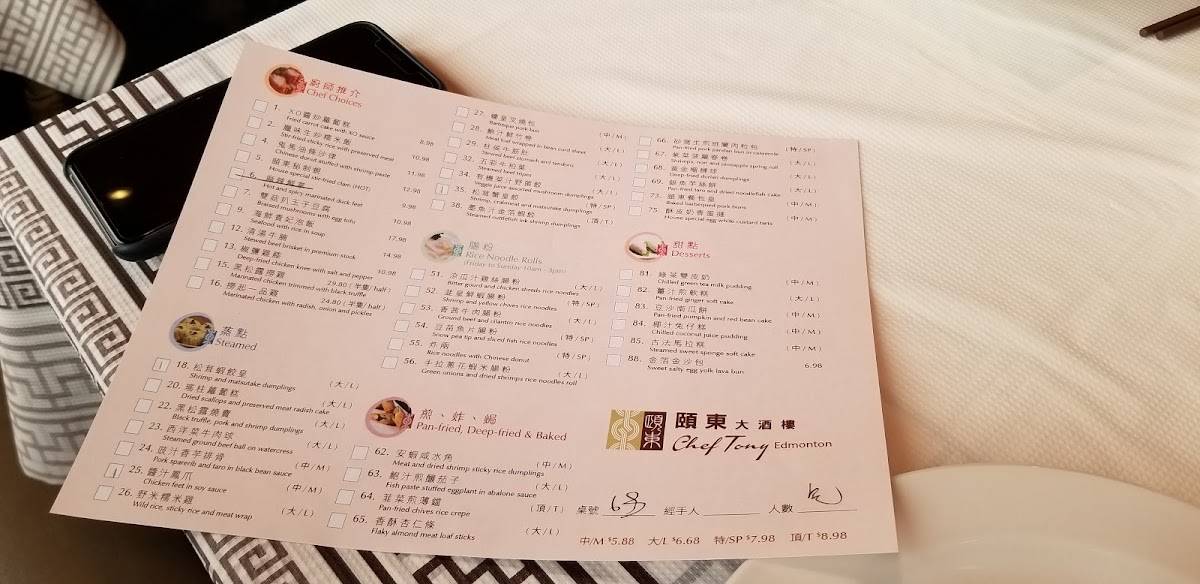 廚師推介
Chef Choices
1. XO醬炒蘿蔔糕
Fried carrot cake with XO sauce 8.98
2. 臘味生炒糯米飯
Stir-fried sticky rice with preserved meat 10.98
4. 鬼馬油條沙律
Chinese donut stuffed with shrimp paste 11.98
5. 頤東秘制蜆
House special stir-fried clam (HOT) 12.98
6.
Hot and spicy marinated duck feet 9.98
7. 雙菇扒玉子豆腐
Braised mushrooms with egg tofu 10.98
9. 海鮮貴妃泡飯
Seafood with rice in soup 17.98
12. 清湯牛腩
Stewed beef brisket in premium stock 14.98
13. 椒鹽雞軟
Deep-fried chicken knee with salt and pepper 10.98
15. 黑松露撈雞 29.80 (半隻/half)
Marinated chicken trimmed with black truffle
16. 撈起二品雞 24.80 (半隻/half)
Marinated chicken with radish, onion and pickles
蒸點
Steamed
18. 松茸蝦餃皇 (大/L)
Shrimp and matsutake dumplings
20. 瑤柱蘿蔔糕 (大/L)
Dried scallops and preserved meat radish cake
22. 黑松露燒賣 (大/L)
Black truffle, pork and shrimp dumplings
23. 西洋菜牛肉球 (大/L)
Steamed ground beef ball on watercress
24. 豉汁香芋排骨 (中/M)
Pork sparerib and taro in black bean sauce
25. 醬汁鳳爪 (中/M)
Chicken feet in soy sauce
26. 野米糯米雞 (大/L)
Wild rice, sticky rice and meat wrap
27. 蠔皇叉燒包 (中/M)
Barbeque pork bun
28. 鮑汁鮮竹卷 (大/L)
Meat loaf wrapped in bean curd sheet
29. 柱侯牛筋肚 (大/L)
Stewed beef stomach and tendons
32. 五彩牛柏葉 (大/L)
Steamed beef tripes
34. 有機菜汁野菌餃 (大/L)
Veggie juice assorted mushroom dumplings
35. 松茸蟹皇餃 (特/SP)
Shrimp, crabmeat and matsutake dumplings
38. 墨魚汁金箔蝦餃 (頂/T)
Steamed cuttlefish ink shrimp dumplings
腸粉
Rice Noodle Rolls
(Friday to Sunday 10am - 3pm)
51. 涼瓜汁雞絲腸粉 (大/L)
Bitter gourd and chicken shreds rice noodles
52. 韮皇鮮蝦腸粉 (特/SP)
Shrimp and yellow chives rice noodles
53. 香茜牛肉腸粉 (大/L)
Ground beef and cilantro rice noodles
54. 豆苗魚片腸粉 (特/SP)
Snow pea tip and sliced fish rice noodles
55. 炸兩 (特/SP)
Rice noodles with Chinese donut
56. 手拉蔥花蝦米腸粉 (大/L)
Green onions and dried shrimps rice noodles roll
煎、炸、焗
Pan-fried, Deep-fried & Baked
62. 安蝦咸水角 (中/M)
Meat and dried shrimp sticky rice dumplings
63. 鮑汁煎釀茄子 (大/L)
Fish paste stuffed eggplant in abalone sauce
64. 韮菜煎薄鐺 (頂/T)
Pan-fried chives rice crepe
65. 香酥杏仁條 (大/L)
Flaky almond meat loaf sticks
66. 砂窩生煎班蘭肉粒包 (特/SP)
Pan-fried pork pandan bun in casserole
67. 紫菜菠蘿春卷 (大/L)
Shrimps, nori and pineapple spring roll
68. 黃金榴槤球 (大/L)
Deep-fried durian dumplings
69. 銀魚芋絲餅 (大/L)
Pan-fried taro and dried noodlefish cake
73. 頤東餐包皇 (中/M)
Baked barbequed pork buns
75. 酥皮奶香蛋撻 (中/M)
House special egg white custard tarts
甜點
Desserts
81. 綠茶雙皮奶 (中/M)
Chilled green tea milk pudding
82. 薑汁煎軟糕 (大/L)
Pan-fried ginger soft cake
83. 豆沙南瓜餅 (中/M)
Pan-fried pumpkin and red bean cake
84. 椰汁兔仔糕 (中/M)
Chilled coconut juice pudding
85. 古法馬拉糕 (中/M)
Steamed sweet sponge soft cake
88. 金箔金沙包 6.98
Sweet salty egg yolk lava bun
頤東大酒樓
Chef Tony Edmonton
桌號 經手人 人數
中/M $5.88 大/L $6.68 特/SP $7.98 頂/T $8.98